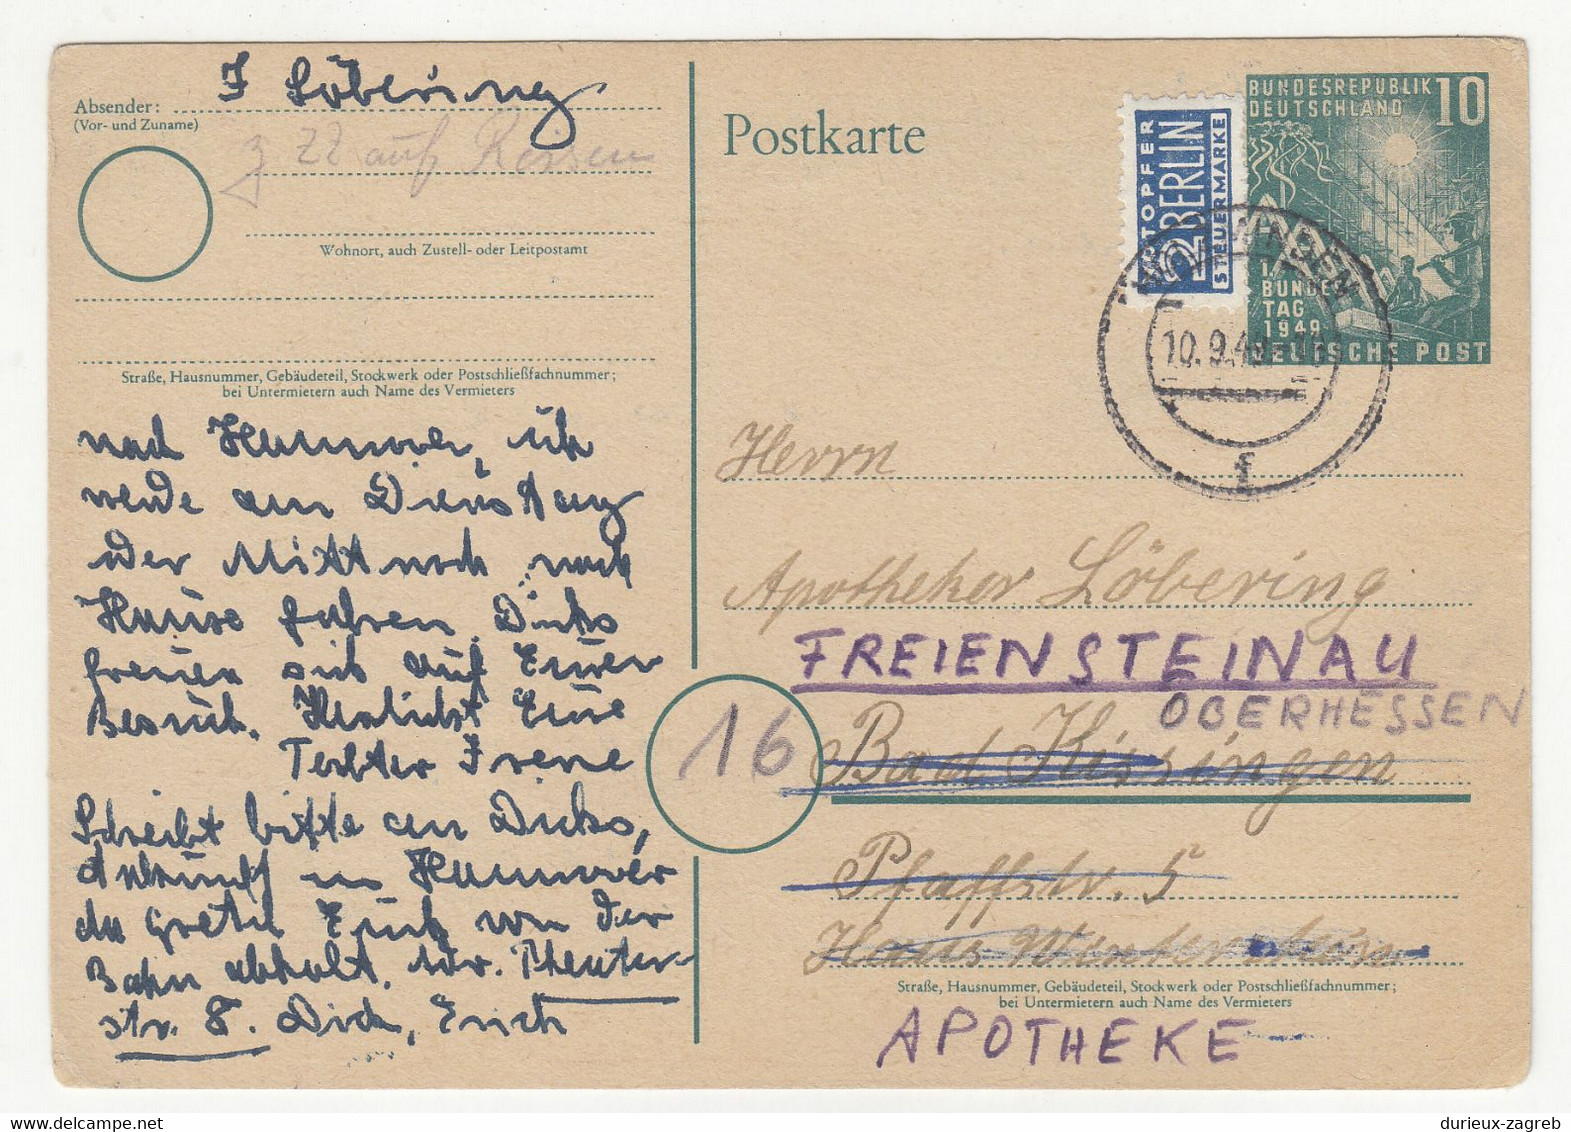 Absender: J Löbering
(Vor- und Zuname)
z Zt auf Reisen
Wohnort, auch Zustell- oder Leitpostamt
Straße, Hausnummer, Gebäudeteil, Stockwerk oder Postschließfachnummer;
bei Untermietern auch Name des Vermieters
nach Hannover, ich
werde am Dienstag
oder Mittwoch nach
Hause fahren.
freuen sich auf Euren
Besuch. Herzlichst Eure
Tochter Irene
Schreibt bitte an
Ankunft in Hannover
Euch von der
Bahn abholt. Adr. Theater-
str. 8. Erich
Postkarte
NOTOPFER
2 BERLIN
STEUERMARKE
BUNDESREPUBLIK 10
DEUTSCHLAND
1.
BUNDES
TAG
1949
DEUTSCHE POST
10.9.49
f
Herrn
Apotheker Löbering
FREIENSTEINAU
OBERHESSEN
16
Bad Kissingen
Pfaffstr. 5
Haus Winterstein
Straße, Hausnummer, Gebäudeteil, Stockwerk oder Postschließfachnummer;
bei Untermietern auch Name des Vermieters
APOTHEKE
durieux-zagreb